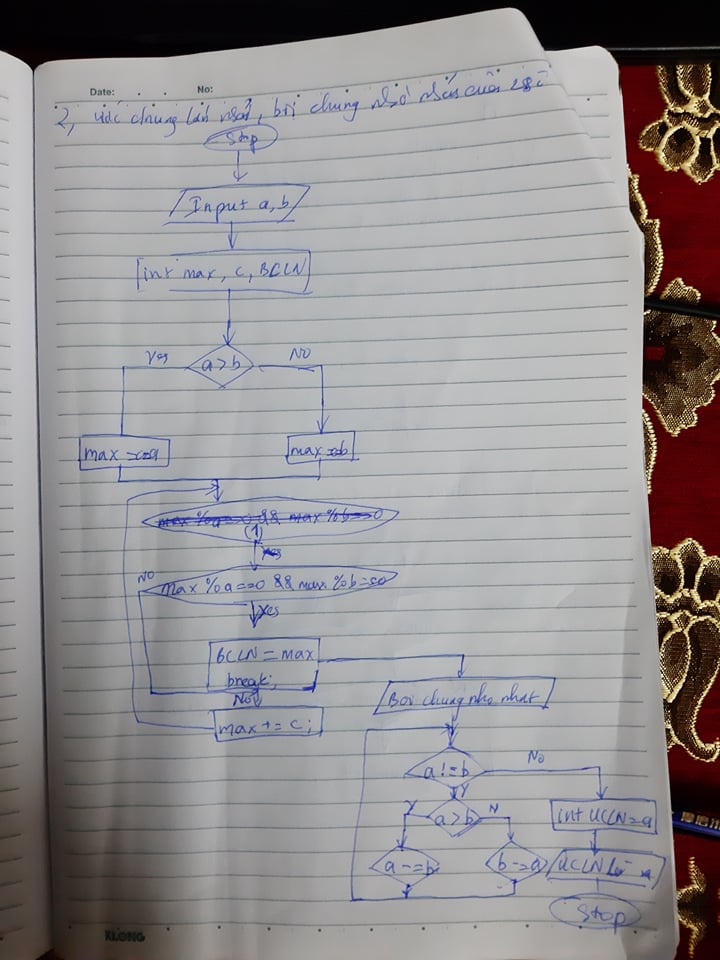 Date: . . No:
2, ước chung lớn nhất, bội chung nhỏ nhất của 2 số
Stop
Input a, b
int max, c, BCLN
a > b
Yes
NO
max = c = a
max = c = b
max % a == 0 && max % b == 0
(1)
Yes
NO
max % a == 0 && max % b == 0
Yes
BCLN = max
break;
No
max += c;
Bội chung nhỏ nhất
a != b
No
Y
a > b
Y
N
int UCLN = a
a -= b
b -= a
UCLN là
Stop
KLONG